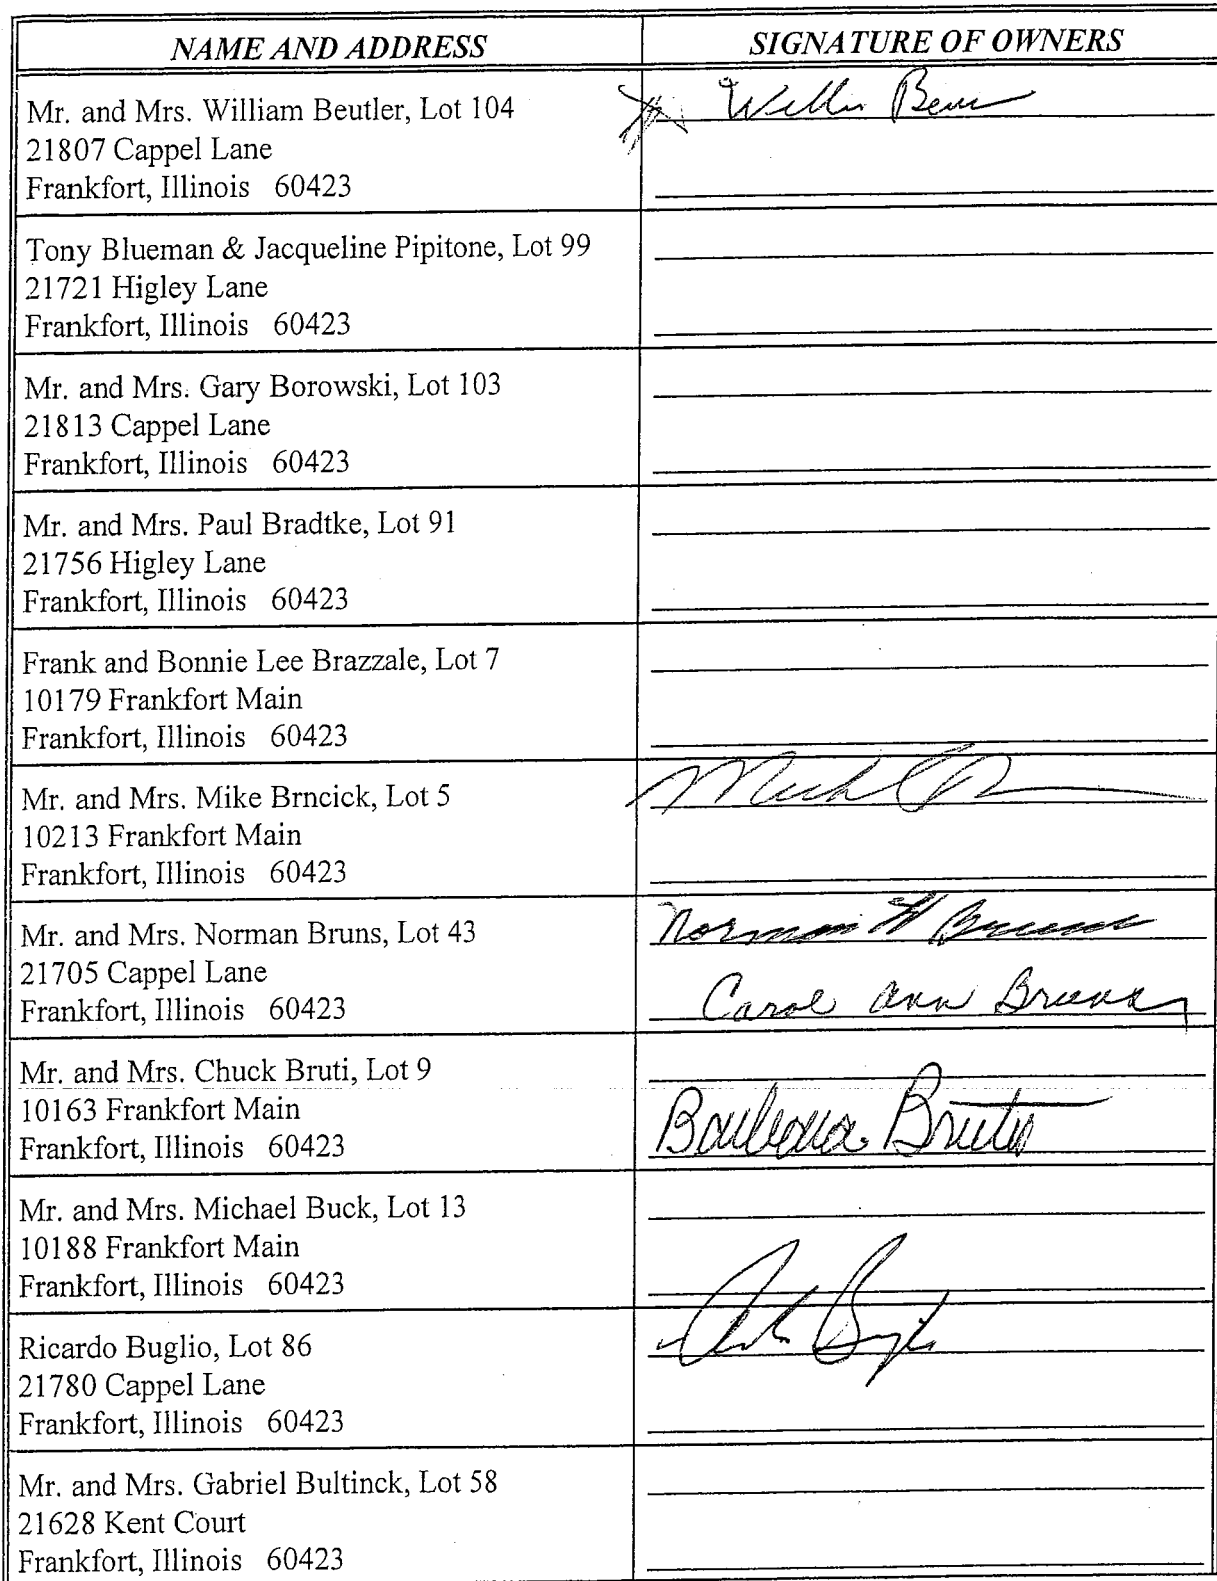 NAME AND ADDRESS
SIGNATURE OF OWNERS
Mr. and Mrs. William Beutler, Lot 104
21807 Cappel Lane
Frankfort, Illinois 60423
Tony Blueman & Jacqueline Pipitone, Lot 99
21721 Higley Lane
Frankfort, Illinois 60423
Mr. and Mrs. Gary Borowski, Lot 103
21813 Cappel Lane
Frankfort, Illinois 60423
Mr. and Mrs. Paul Bradtke, Lot 91
21756 Higley Lane
Frankfort, Illinois 60423
Frank and Bonnie Lee Brazzale, Lot 7
10179 Frankfort Main
Frankfort, Illinois 60423
Mr. and Mrs. Mike Brncick, Lot 5
10213 Frankfort Main
Frankfort, Illinois 60423
Mr. and Mrs. Norman Bruns, Lot 43
Norman H Bruns
21705 Cappel Lane
Frankfort, Illinois 60423
Carol Ann Bruns
Mr. and Mrs. Chuck Bruti, Lot 9
10163 Frankfort Main
Frankfort, Illinois 60423
Barbara Bruti
Mr. and Mrs. Michael Buck, Lot 13
10188 Frankfort Main
Frankfort, Illinois 60423
Ricardo Buglio, Lot 86
21780 Cappel Lane
Frankfort, Illinois 60423
Mr. and Mrs. Gabriel Bultinck, Lot 58
21628 Kent Court
Frankfort, Illinois 60423